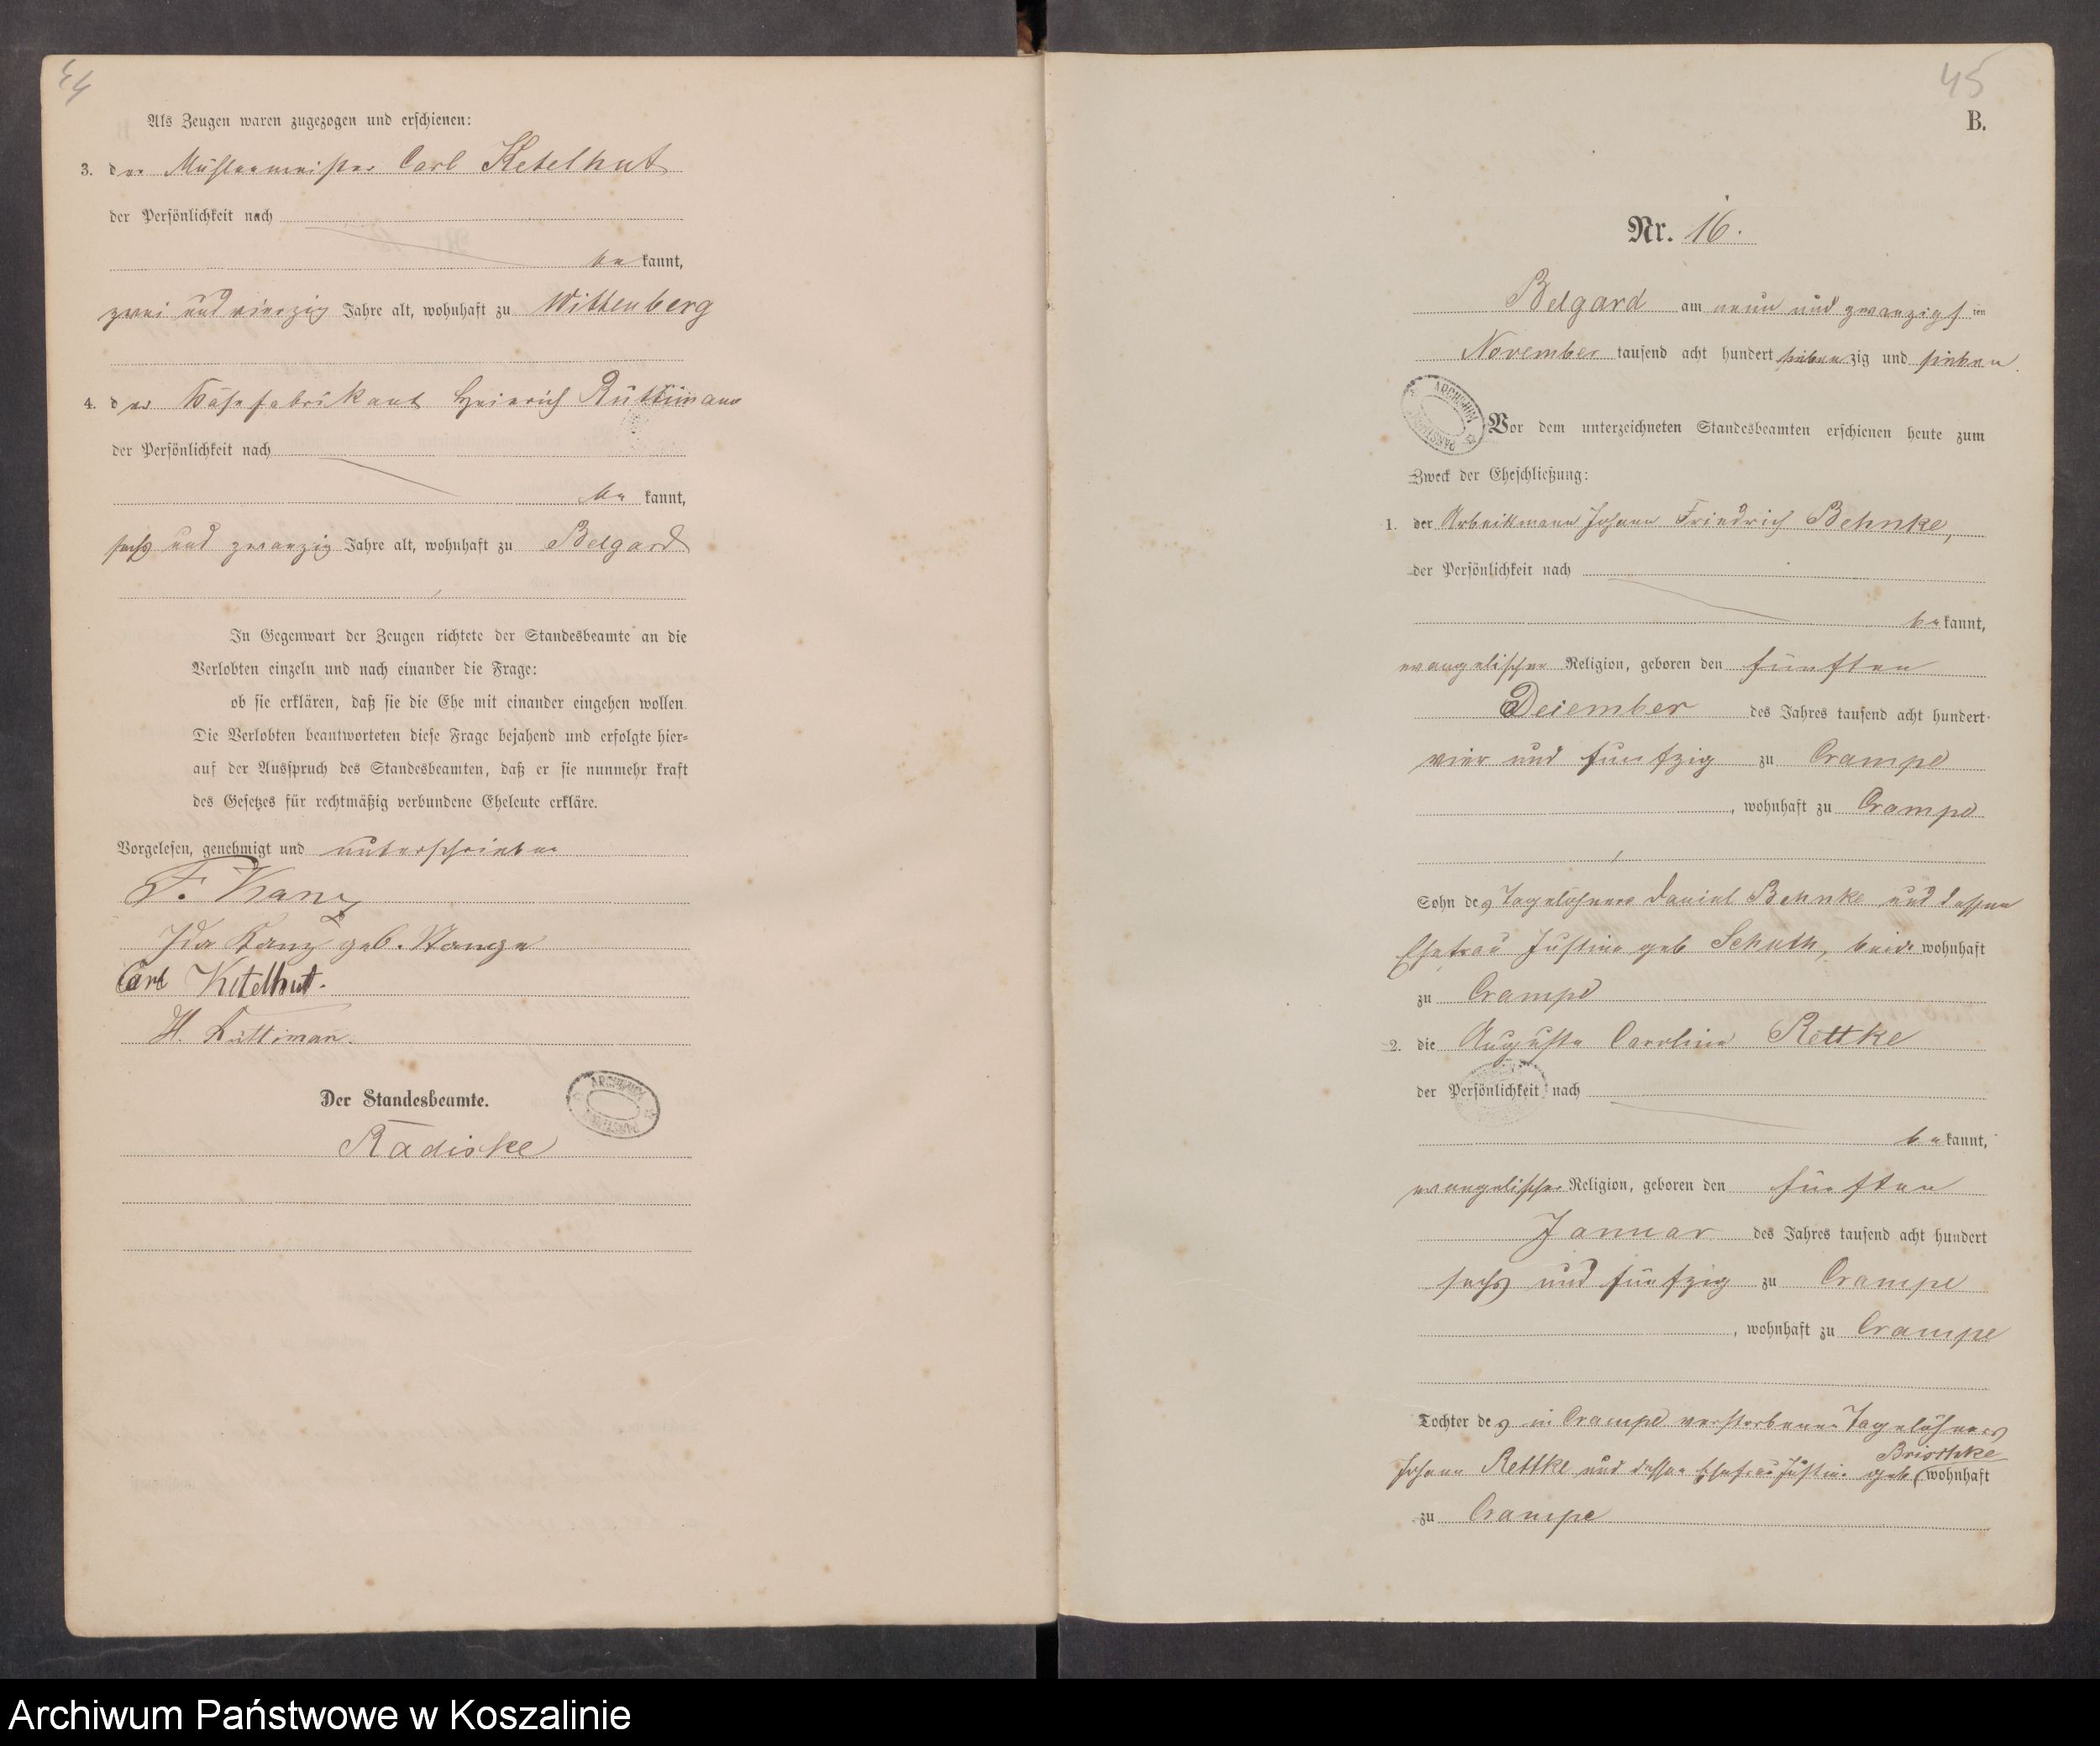 44
Als Zeugen waren zugezogen und erschienen:
3. der Mühlenmeister Carl Ketelhut
der Persönlichkeit nach
be kannt,
zwei und vierzig Jahre alt, wohnhaft zu Wittenberg
4. der Käsefabrikant Heinrich Rüttimann
der Persönlichkeit nach
be kannt,
sechs und zwanzig Jahre alt, wohnhaft zu Belgard
In Gegenwart der Zeugen richtete der Standesbeamte an die
Verlobten einzeln und nach einander die Frage:
ob sie erklären, daß sie die Ehe mit einander eingehen wollen.
Die Verlobten beantworteten diese Frage bejahend und erfolgte hier-
auf der Ausspruch des Standesbeamten, daß er sie nunmehr kraft
des Gesetzes für rechtmäßig verbundene Eheleute erkläre.
Vorgelesen, genehmigt und unterschrieben
F. Kanz
Ida Kanz geb. Stange
Carl Ketelhut.
H. Rüttiman.
Der Standesbeamte.
Radiske
45
B.
Nr. 16.
Belgard am neun und zwanzigsten
November tausend acht hundert siebenzig und sieben.
Vor dem unterzeichneten Standesbeamten erschienen heute zum
Zweck der Eheschließung:
1. der Arbeitsmann Johann Friedrich Behnke,
der Persönlichkeit nach
bekannt,
evangelischer Religion, geboren den fünften
Dezember des Jahres tausend acht hundert
vier und fünfzig zu Crampe
, wohnhaft zu Crampe
Sohn des Tagelöhners Daniel Behnke und dessen
Ehefrau Justine geb Schuth, beide wohnhaft
zu Crampe
2. die Auguste Caroline Rettke
der Persönlichkeit nach
bekannt,
evangelischer Religion, geboren den fünften
Januar des Jahres tausend acht hundert
sechs und fünfzig zu Crampe
, wohnhaft zu Crampe
Tochter des in Crampe verstorbenen Tagelöhners
Johann Rettke und dessen Ehefrau Justine geb Brischke wohnhaft
zu Crampe
Archiwum Państwowe w Koszalinie